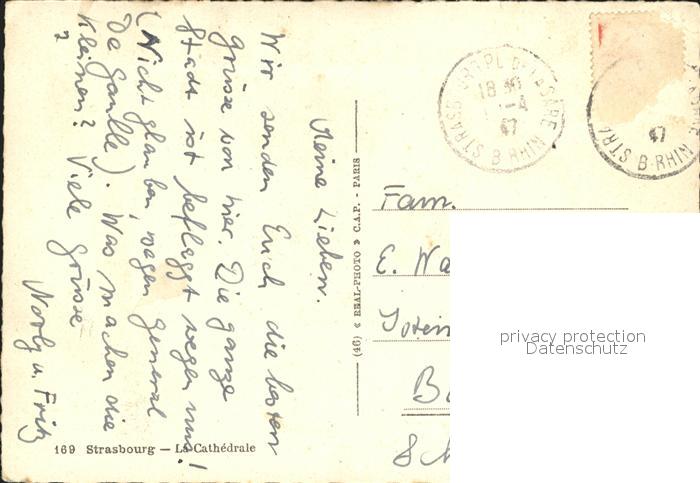 Meine Lieben.
Wir senden Euch die besten
Grüsse von hier. Die ganze
Stadt ist beflaggt wegen uns!
(Nicht glauben, wegen General
De Gaulle). Was machen die
Kleinen? Viele Grüsse
u. Fritz
169 Strasbourg — La Cathédrale
(46) « REAL-PHOTO » C.A.P. - PARIS
STRASBOURG PL. D. LA GARE
18
4
47
B-RHIN
47
STRA
B-RHIN
Fam.
E. Wa
privacy protection
Datenschutz